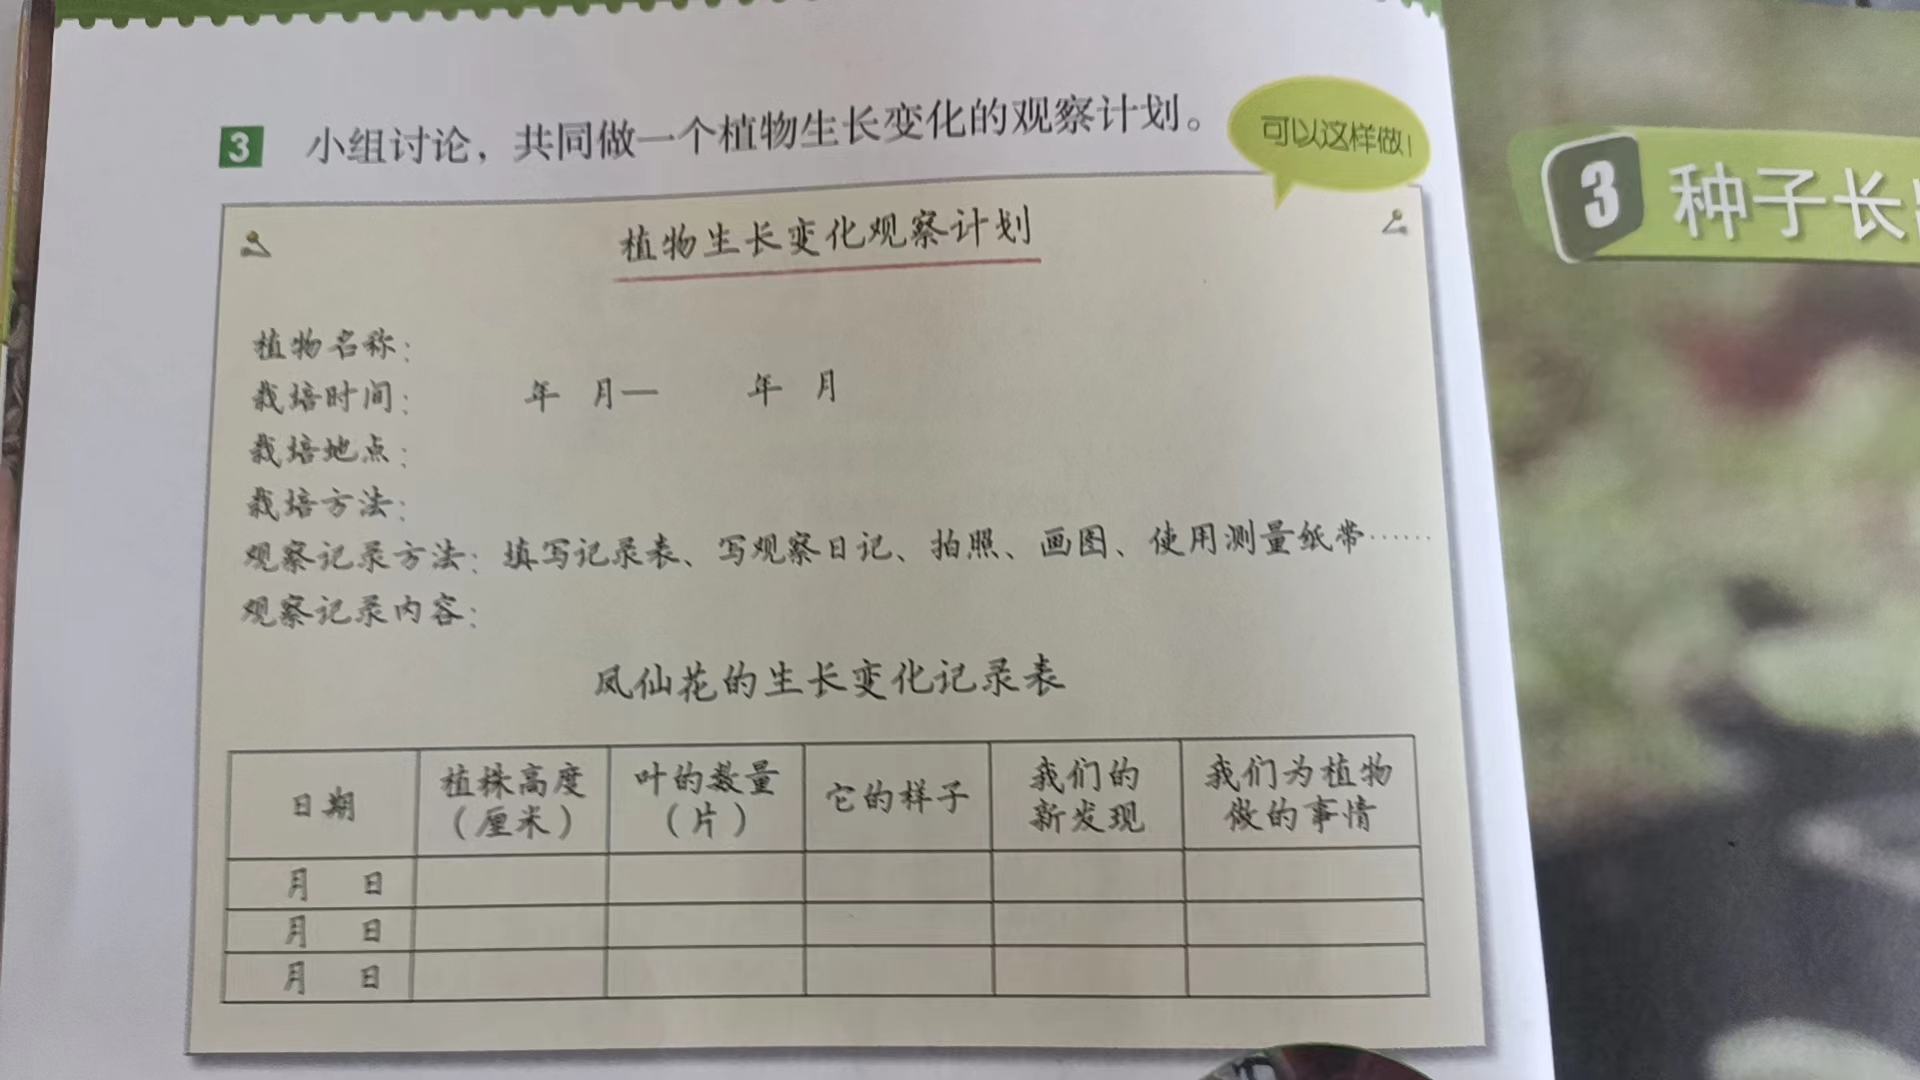 3 小组讨论，共同做一个植物生长变化的观察计划。
可以这样做！
植物生长变化观察计划
植物名称：
栽培时间： 年 月— 年 月
栽培地点：
栽培方法：
观察记录方法：填写记录表、写观察日记、拍照、画图、使用测量纸带……
观察记录内容：
凤仙花的生长变化记录表
日期 植株高度（厘米） 叶的数量（片） 它的样子 我们的新发现 我们为植物做的事情
月 日
月 日
月 日
3 种子长